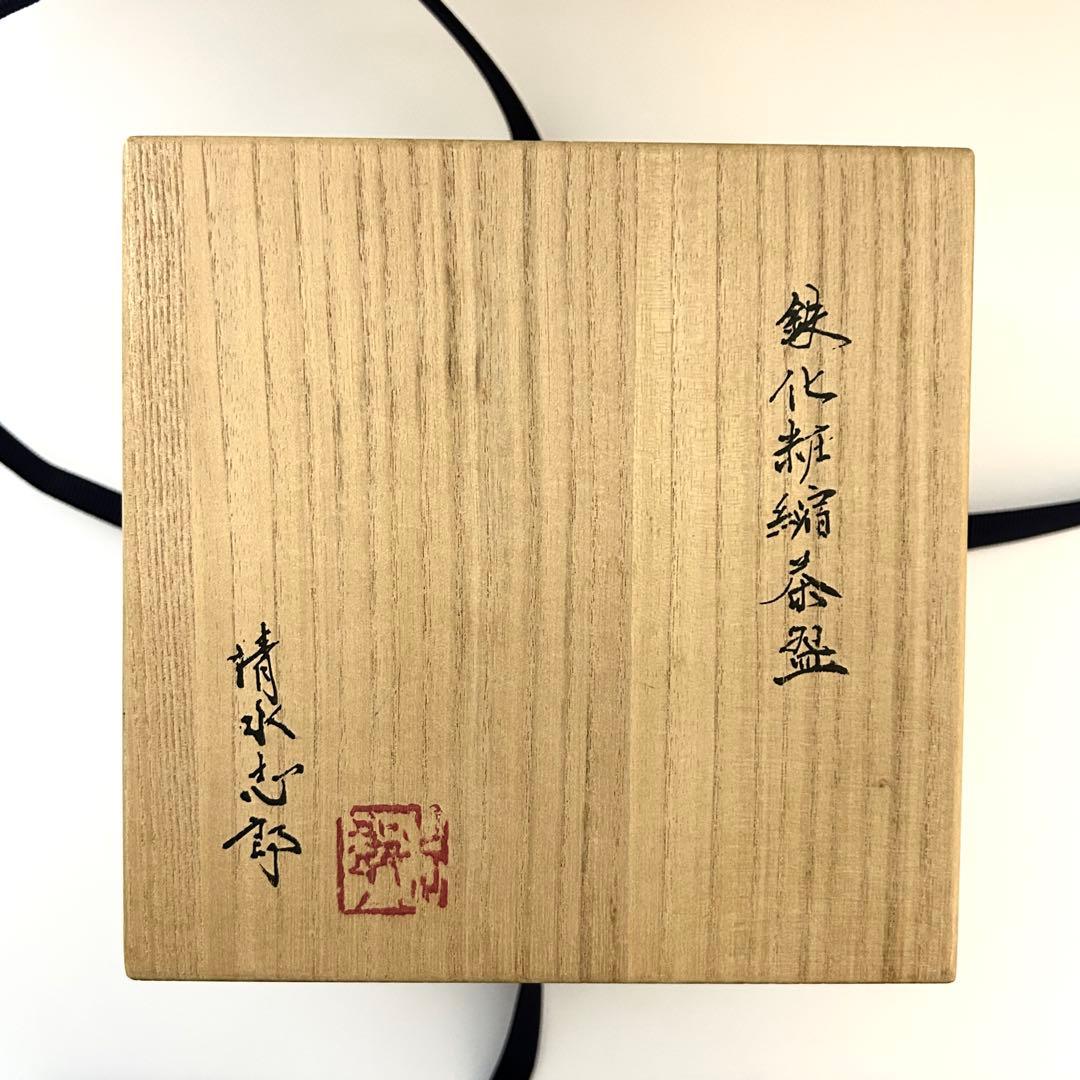 鉄化粧縮茶盌
清水志郎